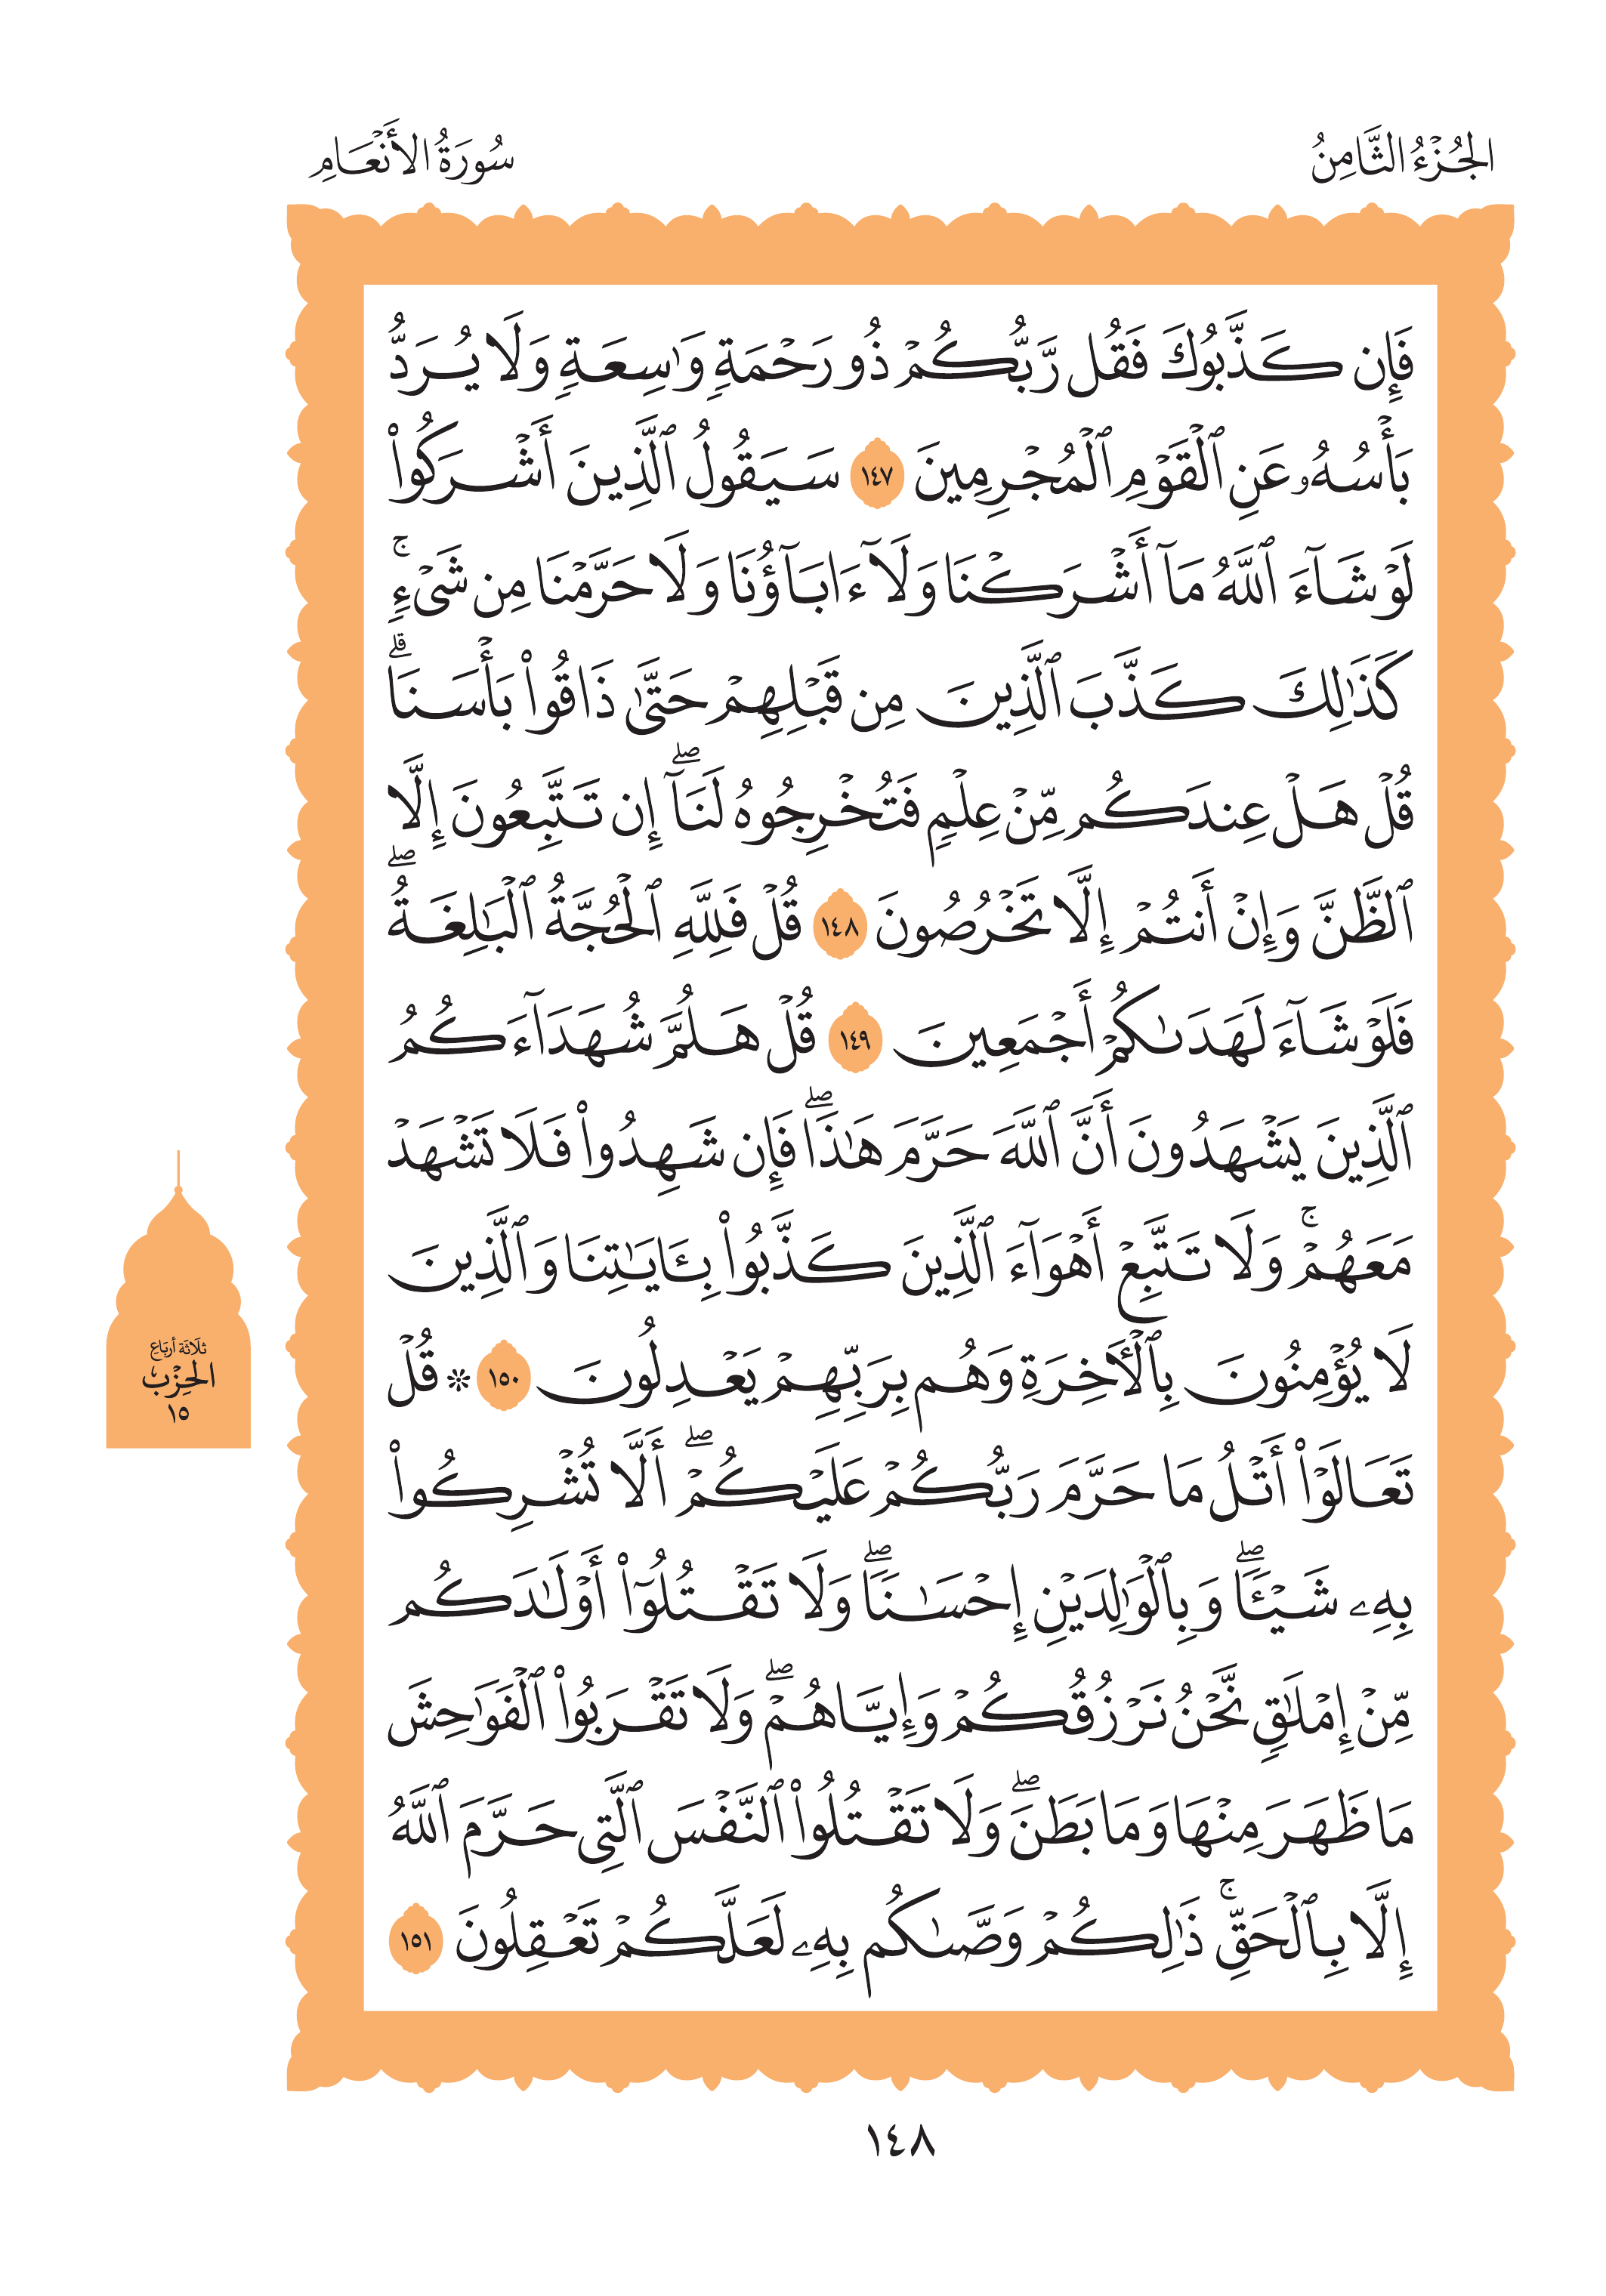 الجُزْءُ الثَّامِنُ
سُورَةُ الأَنْعَامِ
فَإِن كَذَّبُوكَ فَقُل رَّبُّكُمْ ذُو رَحْمَةٍ وَٰسِعَةٍ وَلَا يُرَدُّ
بَأْسُهُۥ عَنِ ٱلْقَوْمِ ٱلْمُجْرِمِينَ ١٤٧ سَيَقُولُ ٱلَّذِينَ أَشْرَكُوا۟
لَوْ شَآءَ ٱللَّهُ مَآ أَشْرَكْنَا وَلَآ ءَابَآؤُنَا وَلَا حَرَّمْنَا مِن شَىْءٍ ۚ
كَذَٰلِكَ كَذَّبَ ٱلَّذِينَ مِن قَبْلِهِمْ حَتَّىٰ ذَاقُوا۟ بَأْسَنَا ۗ
قُلْ هَلْ عِندَكُم مِّنْ عِلْمٍ فَتُخْرِجُوهُ لَنَآ ۖ إِن تَتَّبِعُونَ إِلَّا
ٱلظَّنَّ وَإِنْ أَنتُمْ إِلَّا تَخْرُصُونَ ١٤٨ قُلْ فَلِلَّهِ ٱلْحُجَّةُ ٱلْبَٰلِغَةُ ۖ
فَلَوْ شَآءَ لَهَدَىٰكُمْ أَجْمَعِينَ ١٤٩ قُلْ هَلُمَّ شُهَدَآءَكُمُ
ٱلَّذِينَ يَشْهَدُونَ أَنَّ ٱللَّهَ حَرَّمَ هَٰذَا ۖ فَإِن شَهِدُوا۟ فَلَا تَشْهَدْ
مَعَهُمْ ۚ وَلَا تَتَّبِعْ أَهْوَآءَ ٱلَّذِينَ كَذَّبُوا۟ بِـَٔايَٰتِنَا وَٱلَّذِينَ
لَا يُؤْمِنُونَ بِٱلْـَٔاخِرَةِ وَهُم بِرَبِّهِمْ يَعْدِلُونَ ١٥٠ ❊ قُلْ
تَعَالَوْا۟ أَتْلُ مَا حَرَّمَ رَبُّكُمْ عَلَيْكُمْ ۖ أَلَّا تُشْرِكُوا۟
بِهِۦ شَيْـًٔا ۖ وَبِٱلْوَٰلِدَيْنِ إِحْسَٰنًا ۖ وَلَا تَقْتُلُوٓا۟ أَوْلَٰدَكُم
مِّنْ إِمْلَٰقٍ نَّحْنُ نَرْزُقُكُمْ وَإِيَّاهُمْ ۖ وَلَا تَقْرَبُوا۟ ٱلْفَوَٰحِشَ
مَا ظَهَرَ مِنْهَا وَمَا بَطَنَ ۖ وَلَا تَقْتُلُوا۟ ٱلنَّفْسَ ٱلَّتِى حَرَّمَ ٱللَّهُ
إِلَّا بِٱلْحَقِّ ۚ ذَٰلِكُمْ وَصَّىٰكُم بِهِۦ لَعَلَّكُمْ تَعْقِلُونَ ١٥١
ثلَاثَة أربَاع
الحِزْب
١٥
١٤٨